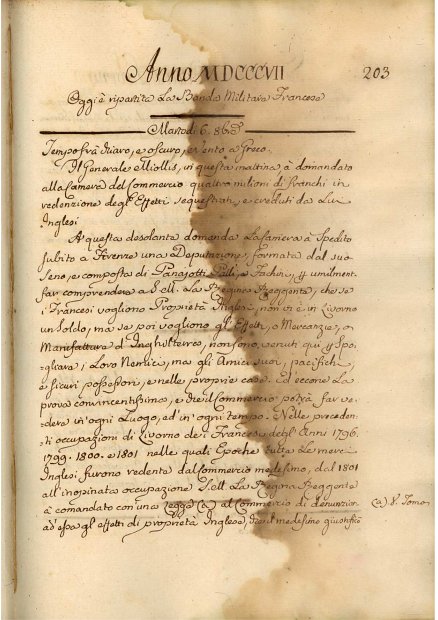 Anno MDCCCVII
203
Oggi è ripartita La Banda Militare Francese
Martedi 6. 8bre
Tempo frà chiaro, e oscuro, e vento a Greco.
Il Generale Miollis, in questa mattina à domandato
alla Camera del Commercio quattro milioni di franchi in
redenzione degl'Effetti sequestrati, e creduti da Lui
Inglesi
A questa desolante domanda La Camera à Spedito
subito a Firenze una Deputazione, formata dal suo
Seno, e composta di Panajotti Palli, e Fachin, umilment.
far comprendere a S. M. La Regina Reggente, che se
i Francesi vogliono Proprietà Inglese, non vi è in Livorno
un Soldo, ma se poi vogliono gl'Effetti, o Mercanzie, o
Manifatture d'Inghilterra, non sono venuti quì Spo-
gliare i Loro Nemici, ma gli Amici suoi, pacifichi,
e sicuri possessori, e nelle proprie case. Ed eccone La
prova convincentissima, e che il Commercio potrà far ve-
dere in ogni Luogo, ed in ogni tempo. Nelle preceden-
ti occupazioni di Livorno dei Francesi degl'Anni 1796.
1799. 1800. e 1801 nelle quali Epoche tutte Le merci
Inglesi furono vedute dal Commercio medesimo, dal 1801
all'inopinata occupazione La Regina Reggente
à comandato con una Legge (a) al Commercio di denunzion (a) 8. Tomo
ad essa gl'effetti di proprietà Inglese, che il medesimo giustificò